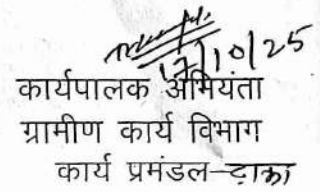 17/10/25
कार्यपालक अभियंता
ग्रामीण कार्य विभाग
कार्य प्रमंडल-ढाका